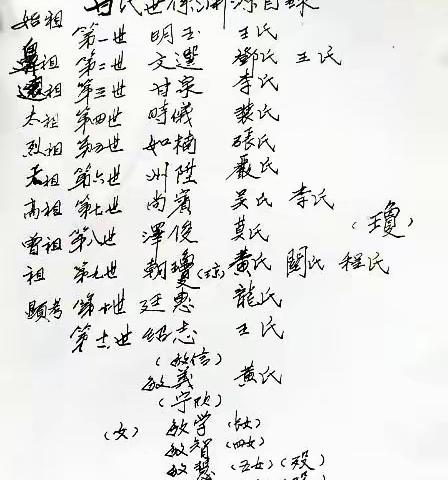 甘氏世系渊源目錄
始祖 第一世 明玉 王氏
鼻祖 第二世 文選 鄧氏 王氏
遠祖 第三世 甘泉 李氏
太祖 第四世 時儀 裴氏
烈祖 第五世 如楠 張氏
天祖 第六世 州陞 嚴氏
高祖 第七世 尚賓 吴氏 李氏
曾祖 第八世 澤俊 莫氏 (瓊)
祖 第九世 朝瓊(琼) 黄氏 関氏 程氏
顕考 第十世 廷惠 龍氏
第十一世 紹志 王氏
(敏信)
敏義 黄氏
(宇欣)
(女) 敏学 (长女)
敏智 (四女)
敏慧 (五女) (殁)